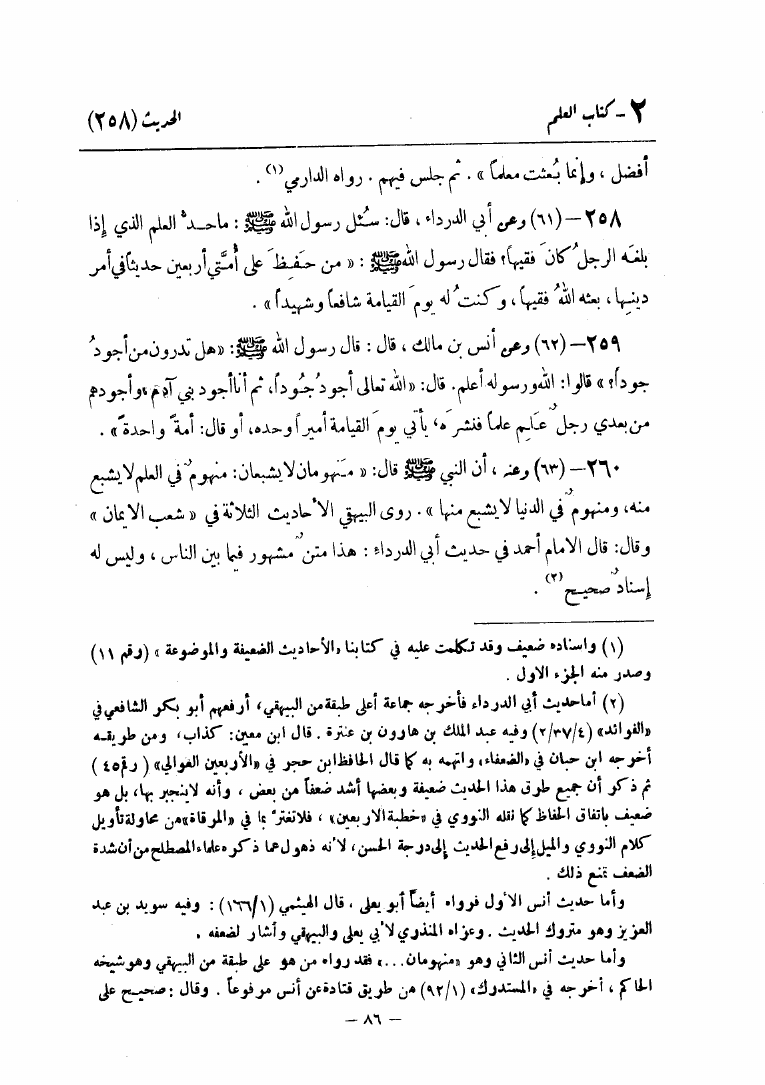 ٢ - كتاب العلم الحديث (٢٥٨)
أفضل ، وإنما بُعثت معلماً » . ثم جلس فيهم . رواه الدارمي (١) .
٢٥٨ - (٦١) وعن أبي الدرداء ، قال: سُئل رسول الله ﷺ : ماحدُّ العلم الذي إذا
بلغَه الرجلُ كانَ فقيهاً؟ فقال رسول الله ﷺ : « من حَفِظَ على أُمَّتي أربعين حديثاً في أمر
دينِها ، بعثه اللهُ فقيهاً ، وكنتُ له يومَ القيامة شافعاً وشهيداً » .
٢٥٩ - (٦٢) وعن أنس بن مالك ، قال : قال رسول الله ﷺ : «هل تدرون من أجودُ
جوداً؟» قالوا: الله ورسوله أعلم. قال: «الله تعالى أجودُ جُوداً، ثم أنا أجود بني آدم ، وأجودهم
من بعدي رجلٌ عَلِم علماً فنشرَه، يأتي يومَ القيامة أميراً وحده، أو قال: أمةً واحدةً » .
٢٦٠ - (٦٣) وعنه ، أن النبي ﷺ قال: « منهومان لا يشبعان: منهومٌ في العلم لا يشبع
منه، ومنهومٌ في الدنيا لا يشبع منها » . روى البيهقي الأحاديث الثلاثة في « شعب الايمان »
وقال: قال الامام أحمد في حديث أبي الدرداء : هذا متنٌ مشهور فيما بين الناس ، وليس له
إسنادٌ صحيح (٢) .
(١) واسناده ضعيف وقد تكلمت عليه في كتابنا «الأحاديث الضعيفة والموضوعة » (رقم ١١)
وصدر منه الجزء الاول .
(٢) أما حديث أبي الدرداء فأخرجه جماعة أعلى طبقة من البيهقي، أرفعهم أبو بكر الشافعي في
«الفوائد» (٢/٣٧/٤) وفيه عبد الملك بن هارون بن عنترة . قال ابن معين: كذاب، ومن طريقه
أخرجه ابن حبان في «الضعفاء، واتهمه به كما قال الحافظ ابن حجر في «الأربعين العوالي» ( رقم ٤٥ )
ثم ذكر أن جميع طرق هذا الحديث ضعيفة وبعضها أشد ضعفاً من بعض ، وأنه لاينجبر بها، بل هو
ضعيف باتفاق الحفاظ كما نقله النووي في «خطبة الاربعين» ، فلا تغترّ بما في «المرقاة» من محاولة تأويل
كلام النووي والميل إلى رفع الحديث إلى درجة الحسن، لأنه ذهول عما ذكره علماء المصطلح من أن شدة
الضعف تمنع ذلك .
وأما حديث أنس الأول فرواه أيضاً أبو يعلى ، قال الهيثمي (١٦٦/١) : وفيه سويد بن عبد
العزيز وهو متروك الحديث . وعزاه المنذري لأبي يعلى والبيهقي وأشار لضعفه .
وأما حديث أنس الثاني وهو «منهومان...» فقد رواه من هو على طبقة من البيهقي وهو شيخه
الحاكم ، أخرجه في «المستدرك» (٩٢/١) من طريق قتادة عن أنس مرفوعاً . وقال : صحيح على
— ٨٦ —